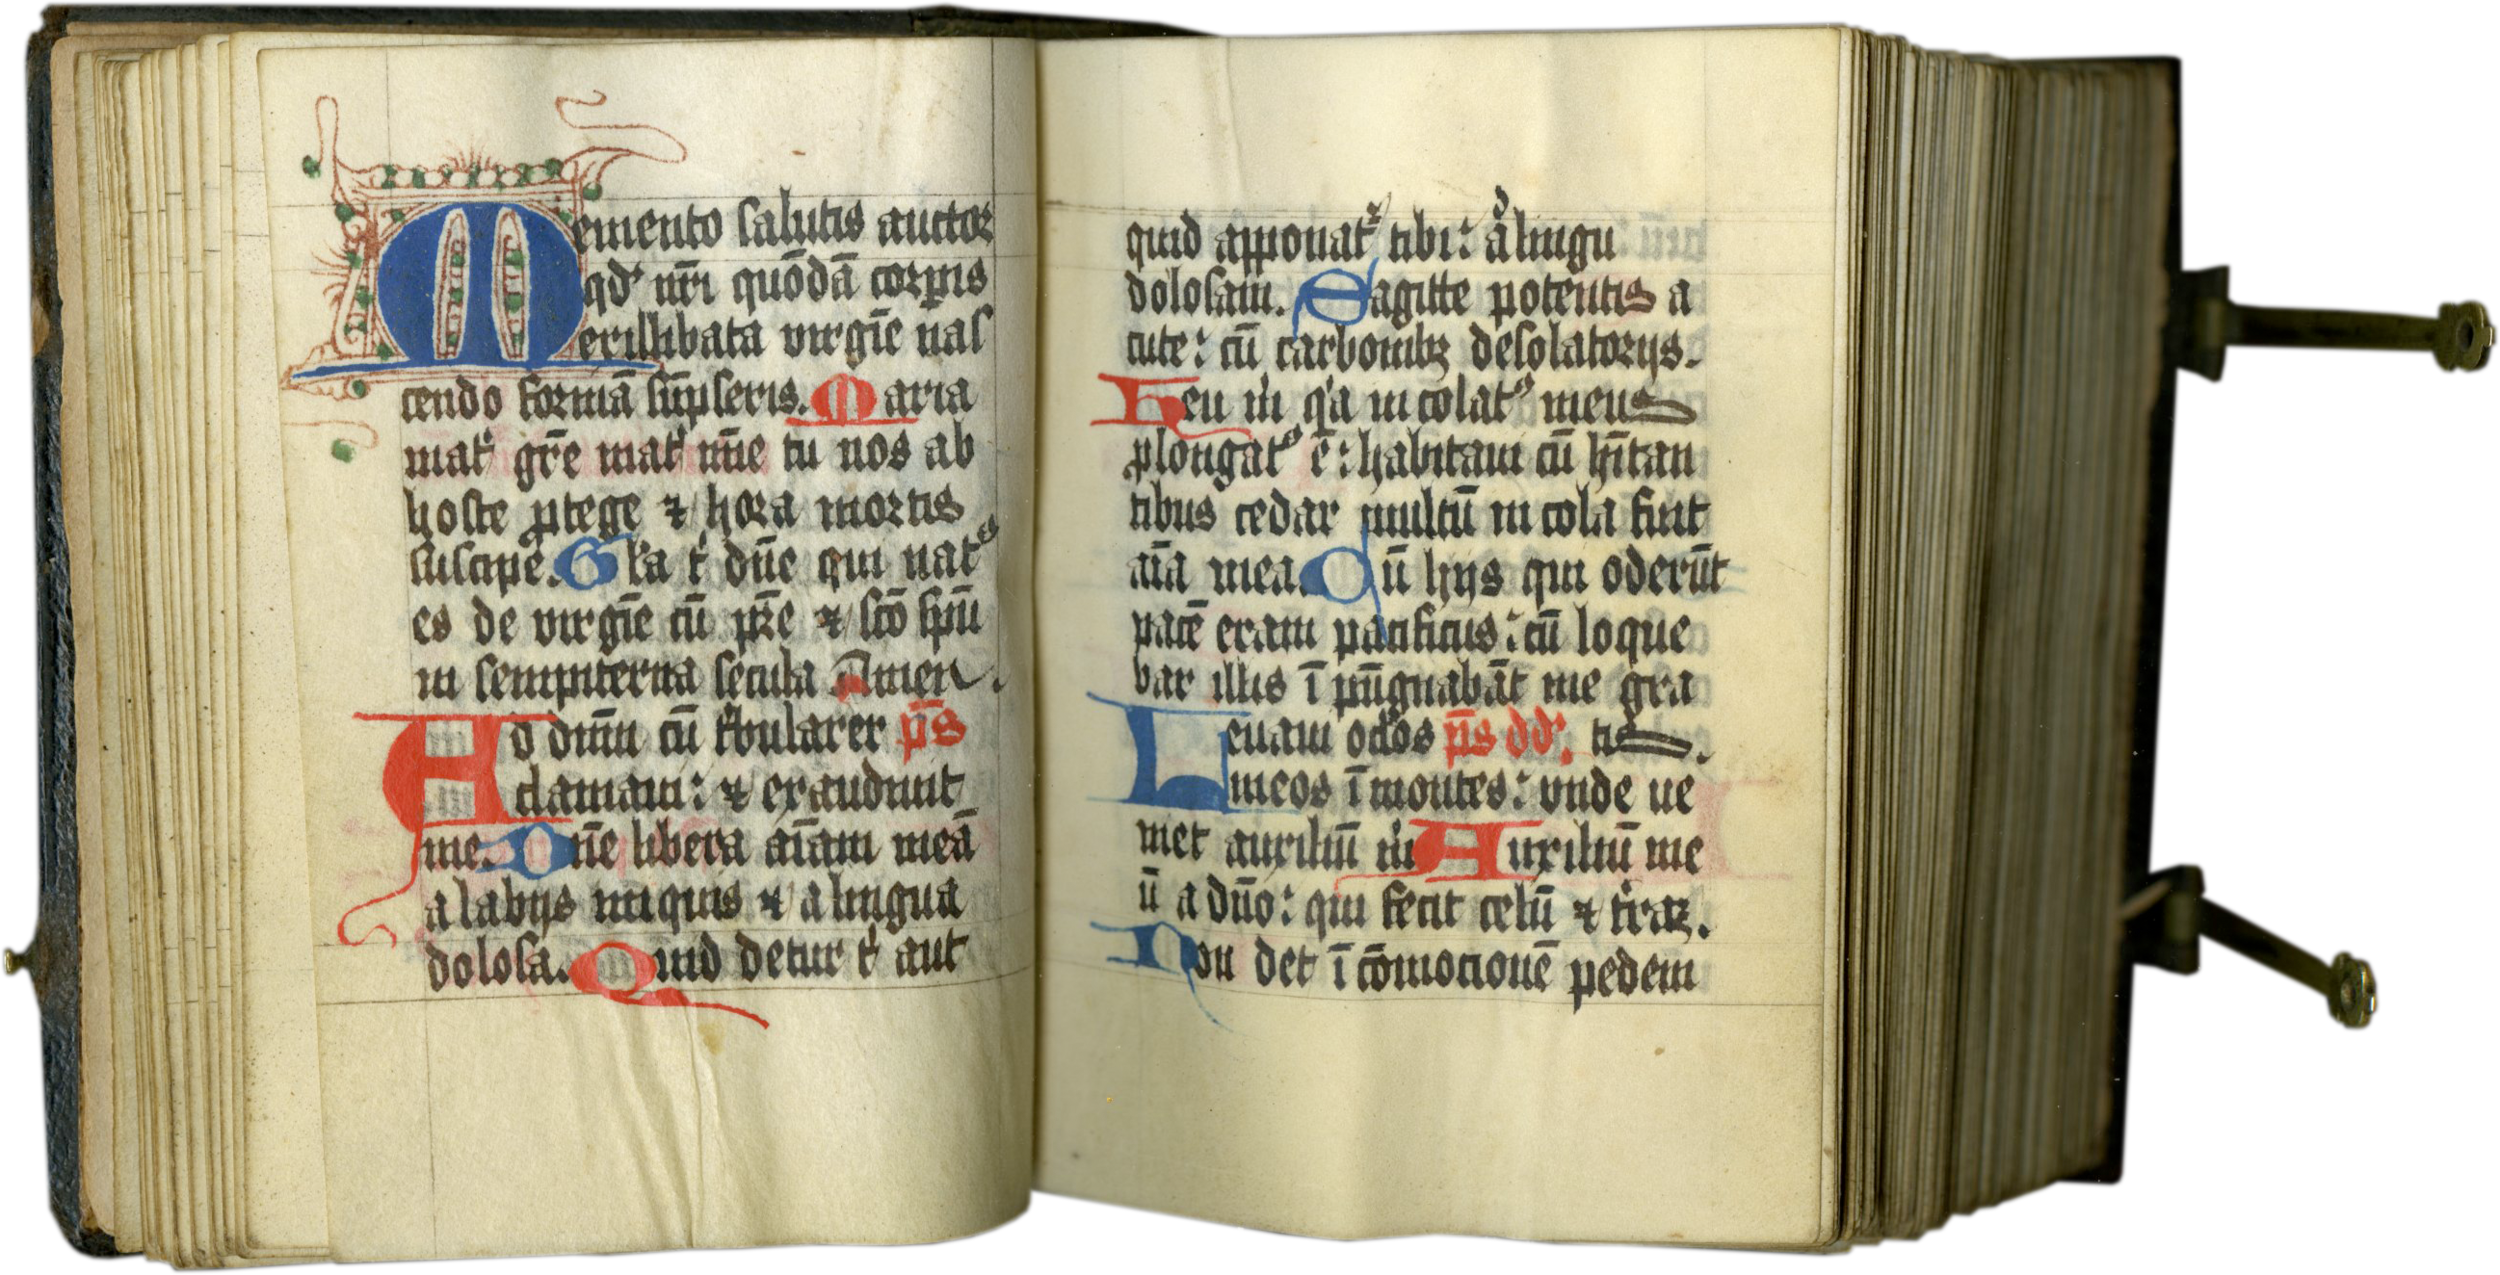 Memento salutis auctor
qd' nr̄i quōdā corpis
exillibata virgīe nas
cendo formā sūpseris. Maria
mat' gr̄e mat' mīe tu nos ab
hoste ꝓtege ⁊ hora mortis
suscipe. Gl'a t' dn̄e qui nat⁹
es de virgīe cū pr̄e ⁊ sc̄o spū
in sempiterna secula Amen.
Ad dnm̄ cū t'bularer p̄s
clamaui: ⁊ exaudiuit
me. Dn̄e libera aīam meā
a labijs iniquis ⁊ a lingua
dolosa. Quid detur t' aut
quid apponat᷑ tibi: a' lingu
dolosam. Sagitte potentis a
cute: cū carbonibꝫ desolatorijs.
Heu m' q'a in colat⁹ meus
ꝓlongat⁹ ē: habitaui cū hītan
tibus cedar multū in cola fuit
aīa mea. Cū hijs qui oderūt
pacē eram pacificus: cū loque
bar illis ī pūgnabāt me gra
Leuaui oc'los p̄s dd'. tis.
meos ī montes: vnde ue
niet auxiliū m' Auxiliū me
ū a dn̄o: qui fecit celū ⁊ t'raꝫ.
Non det ī cōmocionē pedem